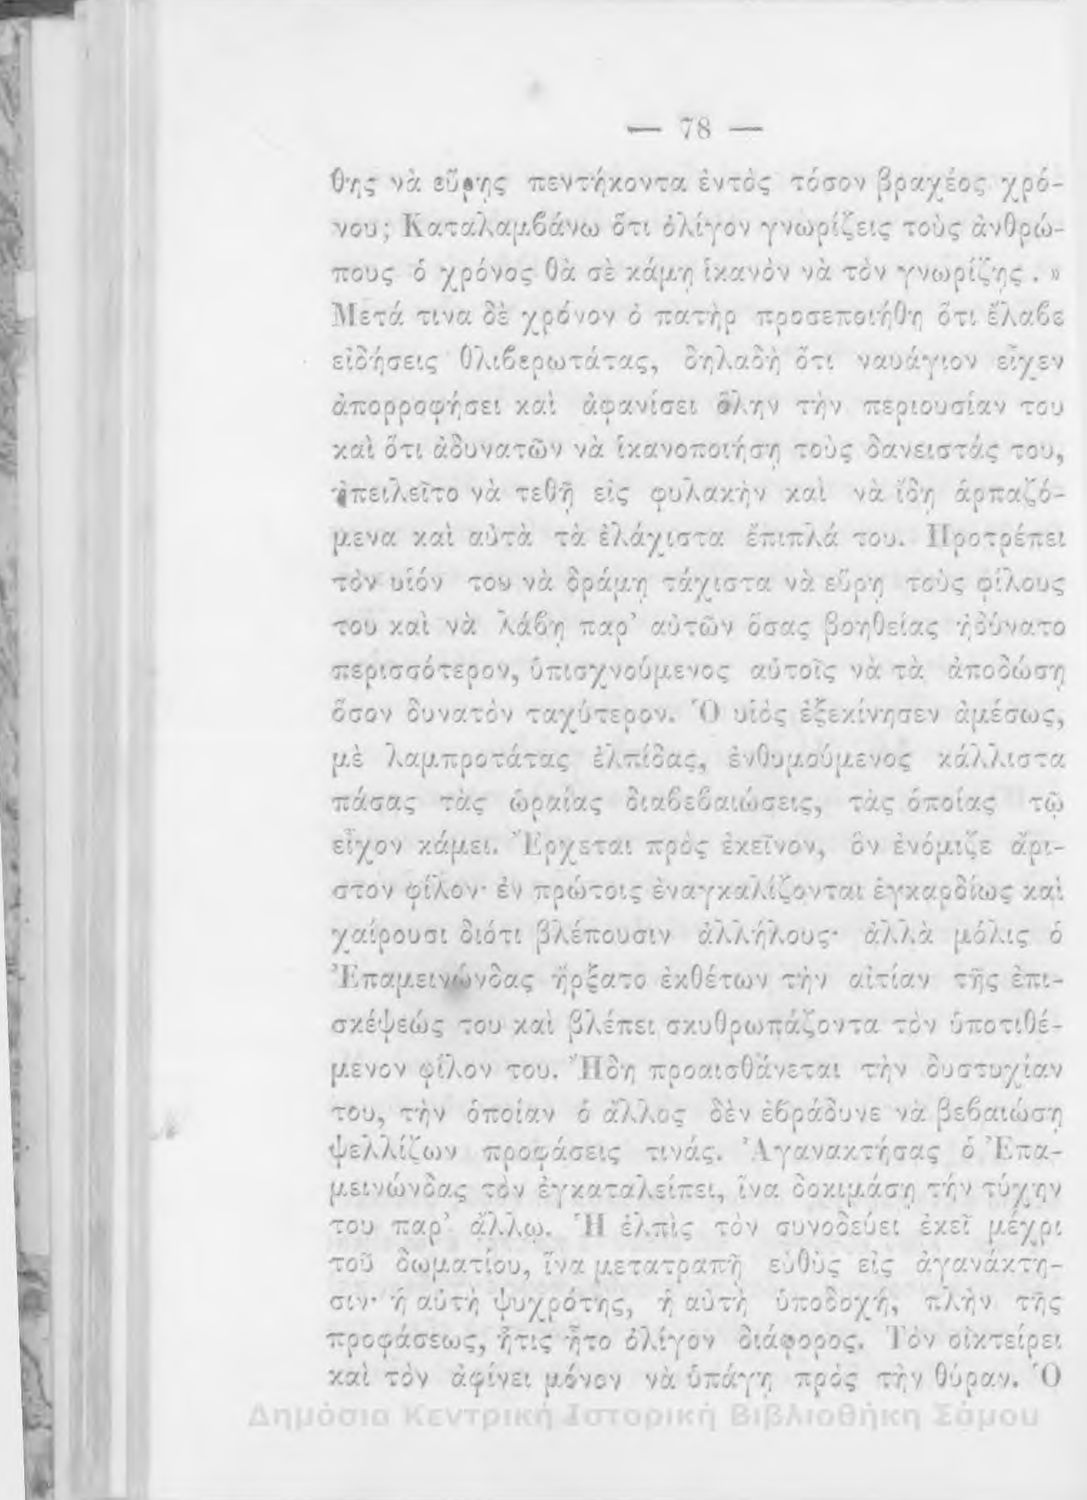 — 78 —
θης νὰ εὕρης πεντήκοντα ἐντὸς τόσον βραχέος χρό-
νου; Καταλαμβάνω ὅτι ὀλίγον γνωρίζεις τοὺς ἀνθρώ-
πους ὁ χρόνος θὰ σὲ κάμῃ ἱκανὸν νὰ τὸν γνωρίζῃς . »
Μετά τινα δὲ χρόνον ὁ πατὴρ προσεποιήθη ὅτι ἔλαβε
εἰδήσεις θλιβερωτάτας, δηλαδὴ ὅτι ναυάγιον εἶχεν
ἀπορροφήσει καὶ ἀφανίσει ὅλην τὴν περιουσίαν του
καὶ ὅτι ἀδυνατῶν νὰ ἱκανοποιήσῃ τοὺς δανειστάς του,
ἠπειλεῖτο νὰ τεθῇ εἰς φυλακὴν καὶ νὰ ἴδῃ ἁρπαζό-
μενα καὶ αὐτὰ τὰ ἐλάχιστα ἔπιπλά του. Προτρέπει
τὸν υἱόν του νὰ δράμῃ τάχιστα νὰ εὕρῃ τοὺς φίλους
του καὶ νὰ λάβῃ παρ’ αὐτῶν ὅσας βοηθείας ἠδύνατο
περισσότερον, ὑπισχνούμενος αὐτοῖς νὰ τὰ ἀποδώσῃ
ὅσον δυνατὸν ταχύτερον. Ὁ υἱὸς ἐξεκίνησεν ἀμέσως,
μὲ λαμπροτάτας ἐλπίδας, ἐνθυμούμενος κάλλιστα
πάσας τὰς ὡραίας διαβεβαιώσεις, τὰς ὁποίας τῷ
εἶχον κάμει. Ἔρχεται πρὸς ἐκεῖνον, ὃν ἐνόμιζε ἄρι-
στον φίλον· ἐν πρώτοις ἐναγκαλίζονται ἐγκαρδίως καὶ
χαίρουσι διότι βλέπουσιν ἀλλήλους· ἀλλὰ μόλις ὁ
Ἐπαμεινώνδας ἤρξατο ἐκθέτων τὴν αἰτίαν τῆς ἐπι-
σκέψεώς του καὶ βλέπει σκυθρωπάζοντα τὸν ὑποτιθέ-
μενον φίλον του. Ἤδη προαισθάνεται τὴν δυστυχίαν
του, τὴν ὁποίαν ὁ ἄλλος δὲν ἐβράδυνε νὰ βεβαιώσῃ
ψελλίζων προφάσεις τινάς. Ἀγανακτήσας ὁ Ἐπα-
μεινώνδας τὸν ἐγκαταλείπει, ἵνα δοκιμάσῃ τὴν τύχην
του παρ’ ἄλλῳ. Ἡ ἐλπὶς τὸν συνοδεύει ἐκεῖ μέχρι
τοῦ δωματίου, ἵνα μετατραπῇ εὐθὺς εἰς ἀγανάκτη-
σιν· ἡ αὐτὴ ψυχρότης, ἡ αὐτὴ ὑποδοχή, πλὴν τῆς
προφάσεως, ἥτις ἦτο ὀλίγον διάφορος. Τὸν οἰκτείρει
καὶ τὸν ἀφίνει μόνον νὰ ὑπάγῃ πρὸς τὴν θύραν. Ὁ
Δημόσια Κεντρική Ιστορική Βιβλιοθήκη Σάμου